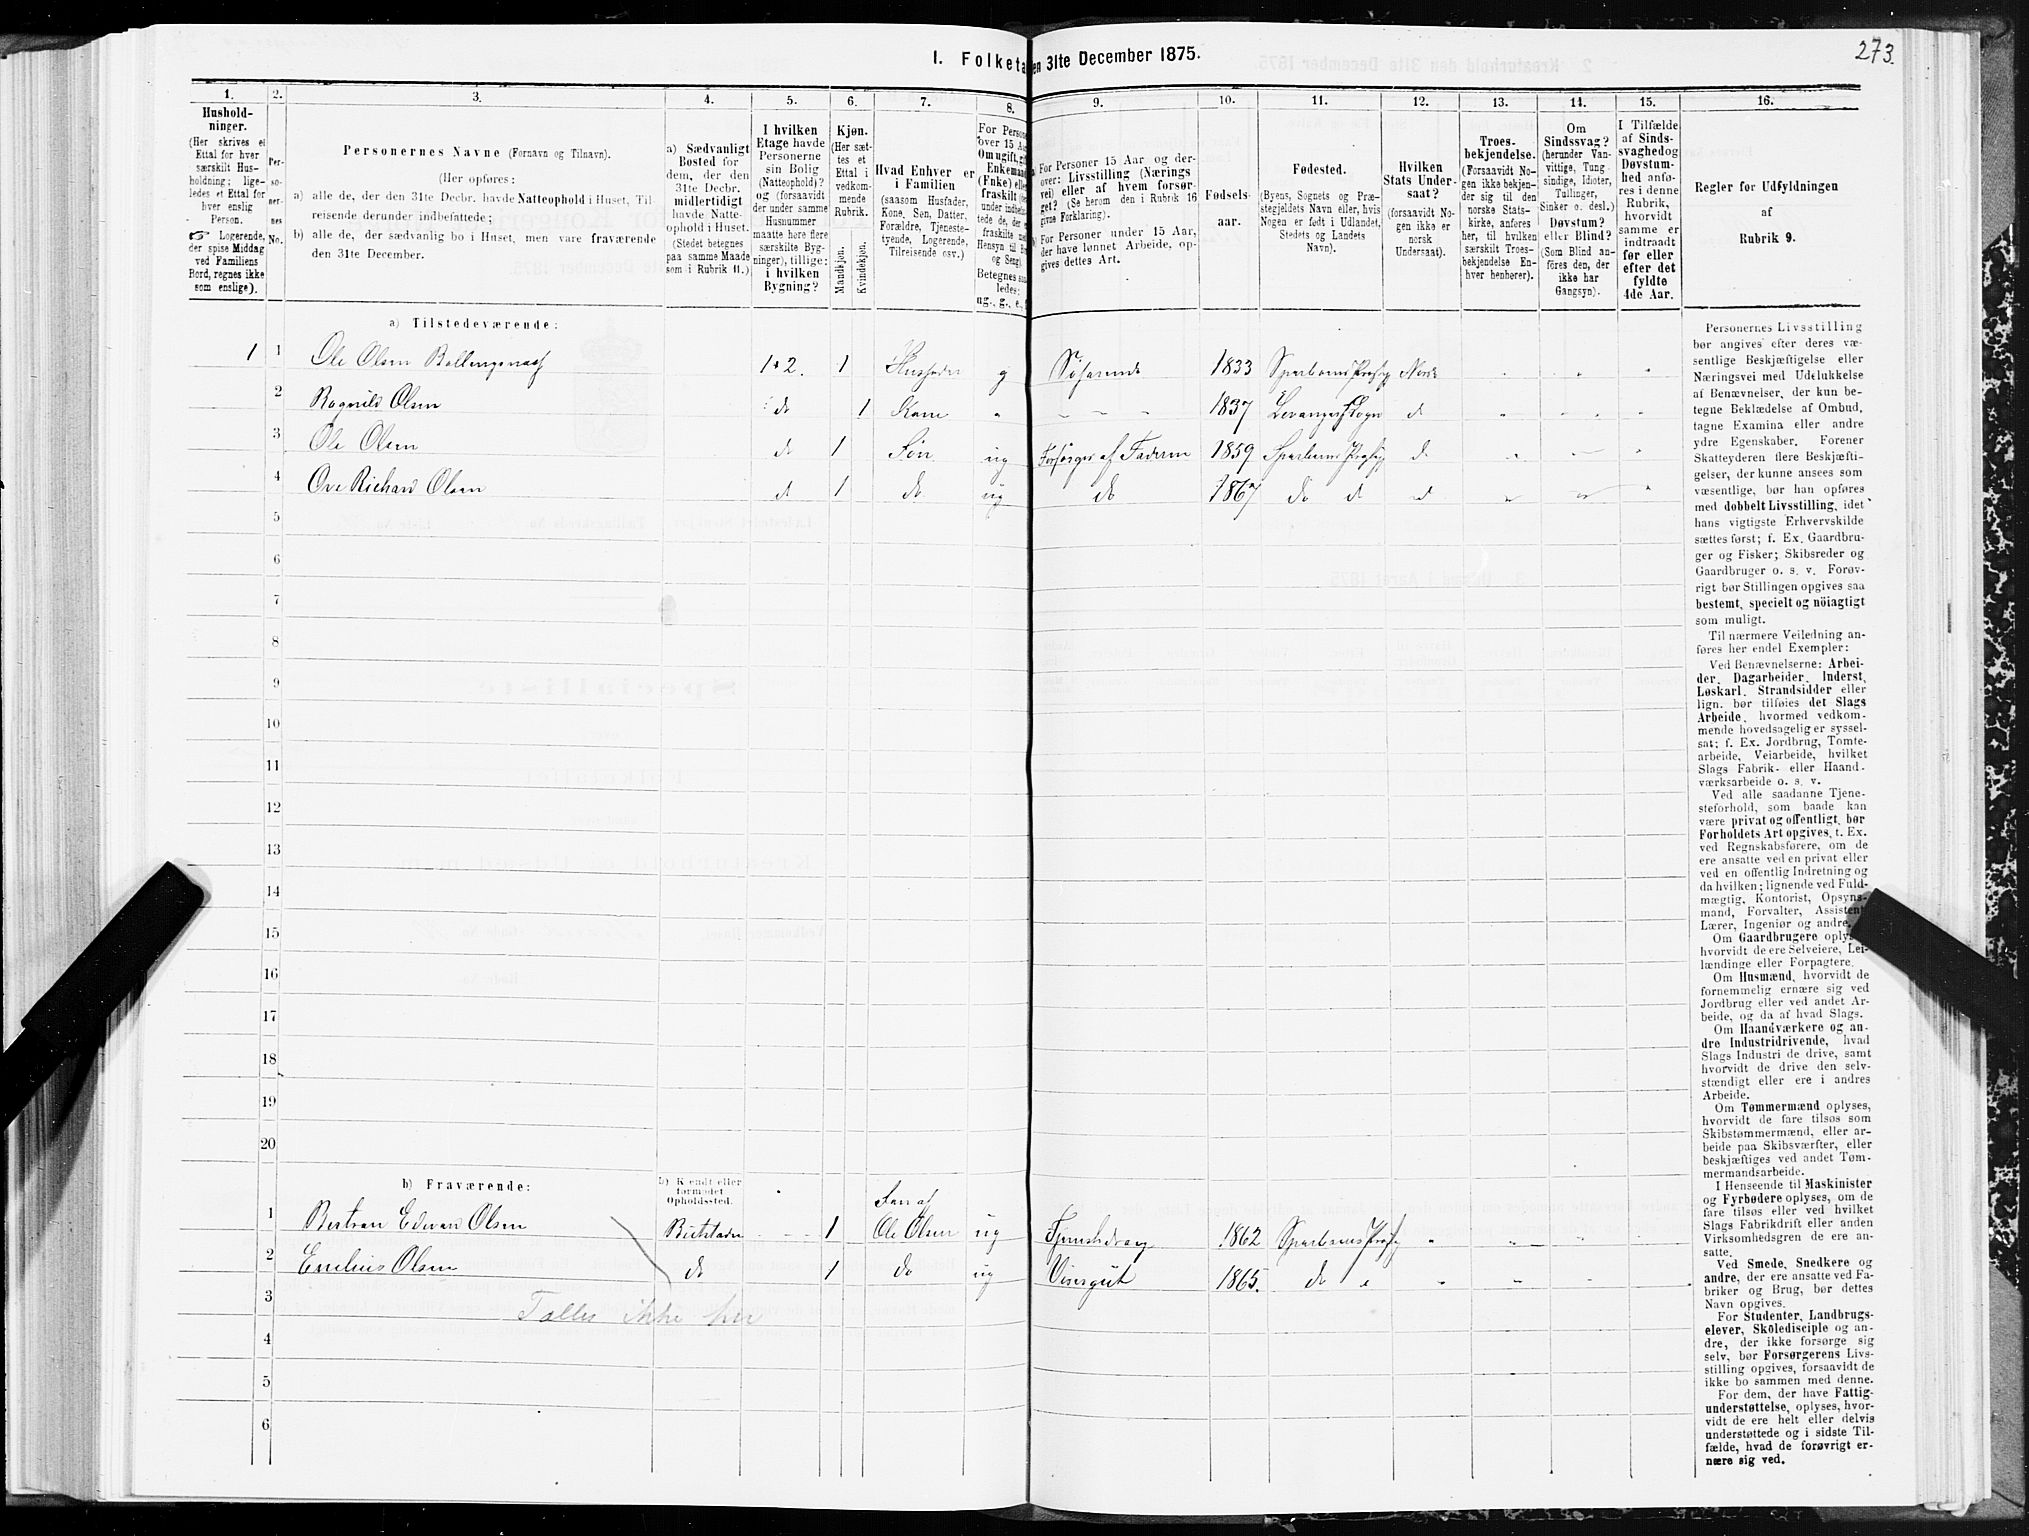 273.
I. Folketa en 31te December 1875.
1. 2. 3. 4. 5. 6. 7. 8. 9. 10. 11. 12. 13. 14. 15. 16.
Hushold-
ninger.
(Her skrives et
Ettal for hver
særskilt Hus-
holdning; lige-
ledes et Ettal for
hver enslig
Person.
☞ Logerende,
der spise Middag
ved Familiens
Bord, regnes ikke
som enslige).
Per-
so-
ner-
nes
No.
Personernes Navne (Fornavn og Tilnavn).
(Her opføres:
a) alle de, der den 31te Decbr. havde Natteophold i Huset, Til-
reisende derunder indbefattede;
b) alle de, der sædvanlig bo i Huset, men vare fraværende
den 31te December.
a) Sædvanligt
Bosted for
dem, der den
31te Decbr.
midlertidigt
havde Natte-
ophold i Huset.
(Stedet betegnes
paa samme Maade
som i Rubrik 11.)
I hvilken
Etage havde
Personerne
sin Bolig
(Natteophold)?
og (forsaavidt
der under samme
Husnummer
maatte høre flere
særskilte Byg-
ninger), tillige:
i hvilken
Bygning?
Kjøn.
(Her sæt-
tes et
Ettal i
vedkom-
mende
Rubrik.
Mandkjøn.
Kvindekjøn.
Hvad Enhver er
i Familien
(saasom Husfader,
Kone, Søn, Datter,
Forældre, Tjeneste-
tyende, Logerende,
Tilreisende osv.)
For Persone
over 15 Aa
Om ugift, gif
Enkeman
(Enke) elle
fraskilt (de
under indbef
tede de, der
fraskilte me
Hensyn til B
og Seng).
Betegnes saa
ledes:
ug., g., e.,
For Personer 15 Aar og der-
over: Livsstilling (Nærings
vei) eller af hvem forsør-
get? (Se herom den i Rubrik 16
givne Forklaring).
For Personer under 15 Aar,
der have lønnet Arbeide, op-
gives dettes Art.
Fødsels-
aar.
Fødested.
(Byens, Sognets og Præ-
stegjeldets Navn eller, hvis
Nogen er født i Udlandet,
Stedets og Landets
Navn).
Hvilken
Stats Under-
saat?
(forsaavidt No-
gen ikke er
norsk
Undersaat).
Troes-
bekjendelse.
(Forsaavidt No-
gen ikke bekjen-
der sig til den
norske Stats-
kirke, anføres
her, til hvilken
særskilt Troes-
bekjendelse En-
hver henhører).
Om
Sindssvag?
(herunder Van-
vittige, Tung-
sindige, Idioter,
Tullinger,
Sinker o. desl.)
Døvstum?
eller Blind?
(Som Blind an-
føres den, der
ikke har
Gangsyn).
I Tilfælde
af Sinds-
svaghed og
Døvstum-
hed anfø-
res i denne
Rubrik,
hvorvidt
samme er
indtraadt
før eller
efter det
fyldte
4de Aar.
Regler for Udfyldningen
af
Rubrik 9.
a) Tilstedeværende:
1 1 Ole Olsen 1+2. 1 Husfader g Søfarende 1833 Sparboens Præstg Norsk
2 Ragnild Olsen do 1 Kone 1837 Levangers Sogn d
3 Ole Olsen do 1 Søn ug Forsørges af Faderen 1859 Sparboens Præstg d
4 Ove Richard Olsen d 1 do ug do 1867 do d d
5
6
7
8
9
10
11
12
13
14
15
16
17
18
19
20
b) Fraværende:
b) Kjendt eller
formodet
Opholdssted.
1 Bertran Edvard Olsen Beitstaden 1 Søn af Ole Olsen ug Tjenestedreng 1862 Sparboens Præstg
2 Emilius Olsen do 1 do ug Visergut 1865. do
3 Tælles ikke her
4
5
6
Personernes Livsstilling
bør angives efter deres væ-
sentlige Beskjæftigelse eller
Næringsvei med Udelukkelse
af Benævnelser, der kun be-
tegne Beklædelse af Ombud,
tagne Examina eller andre
ydre Egenskaber. Forener
Skatteyderen flere Beskjæfti-
gelser, der kunne ansees som
væsentlige, bør han opføres
med dobbelt Livsstilling, idet
hans vigtigste Erhvervskilde
sættes først; f. Ex. Gaardbru-
ger og Fisker; Skibsreder og
Gaardbruger o. s. v. Forøv-
rigt bør Stillingen opgives saa
bestemt, specielt og nöiagtigt
som muligt.
Til nærmere Veiledning an-
føres her endel Exempler:
Ved Benævnelserne: Arbei-
der, Dagarbeider, Inderst,
Løskarl, Strandsidder eller
lign. bør tilføies det Slags
Arbeide, hvormed vedkom-
mende hovedsagelig er syssel-
sat; f. Ex. Jordbrug, Tomte-
arbeide, Veiarbeide, hvilket
Slags Fabrik- eller Haand-
værksarbeide o. s. v.
Ved alle saadanne Tjene-
steforhold, som baade kan
være privat og offentligt, bør
Forholdets Art opgives, t. Ex.
ved Regnskabsførere, om de
ere ansatte ved en privat eller
ved en offentlig Indretning og
da hvilken; lignende ved Fuld-
mægtig, Kontorist, Opsyns-
mand, Forvalter, Assistent,
Lærer, Ingeniør og andre.
Om Gaardbrugere oplyses,
hvorvidt de ere Selveiere, Lei-
lændinge eller Forpagtere.
Om Husmænd, hvorvidt de
fornemmelig ernære sig ved
Jordbrug eller ved andet Ar-
beide, og da af hvad Slags.
Om Haandværkere og an-
dre Industridrivende, hvad
Slags Industri de drive, samt
hvorvidt de drive den selv-
stændigt eller ere i andres
Arbeide.
Om Tømmermænd oplyses,
hvorvidt de fare tilsøs som
Skibstømmermænd, eller ar-
beide paa Skibsværfter, eller
beskjæftiges ved andet Tøm-
mermandsarbeide.
I Henseende til Maskinister
og Fyrbødere oplyses, om de
fare tilsøs eller ved hvilket
Slags Fabrikdrift eller anden
Virksomhedsgren de ere an-
satte.
Ved Smede, Snedkere og
andre, der ere ansatte ved Fa-
briker og Brug, bør dettes
Navn opgives.
For Studenter, Landbrugs-
elever, Skoledisciple og an-
dre, der ikke forsørge sig
selv, bør Forsørgerens Livs-
stilling opgives, forsaavidt de
ikke bo sammen med denne.
For dem, der have Fattig-
understøttelse, oplyses, hvor-
vidt de ere helt eller delvis
understøttede og i sidste Til-
fælde, hvad de forøvrigt er-
nære sig ved.